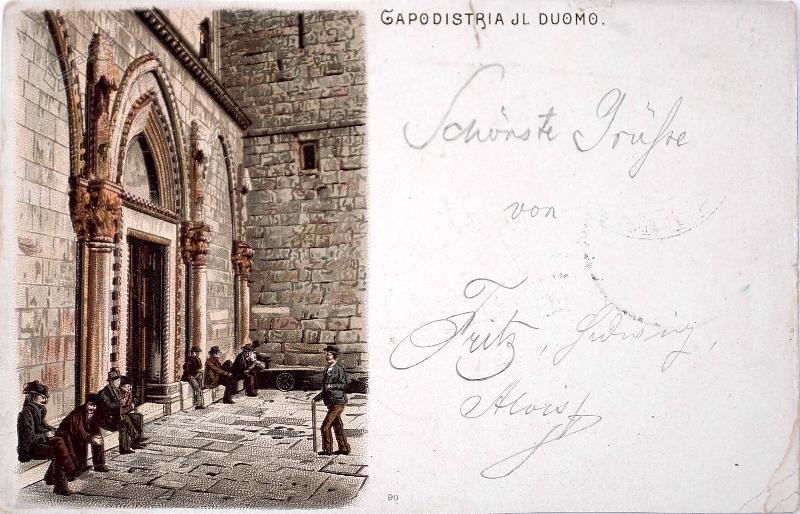 CAPODISTRIA JL DUOMO.
Schönste Grüsse
von
Fritz, Ludwig,
Alois
90